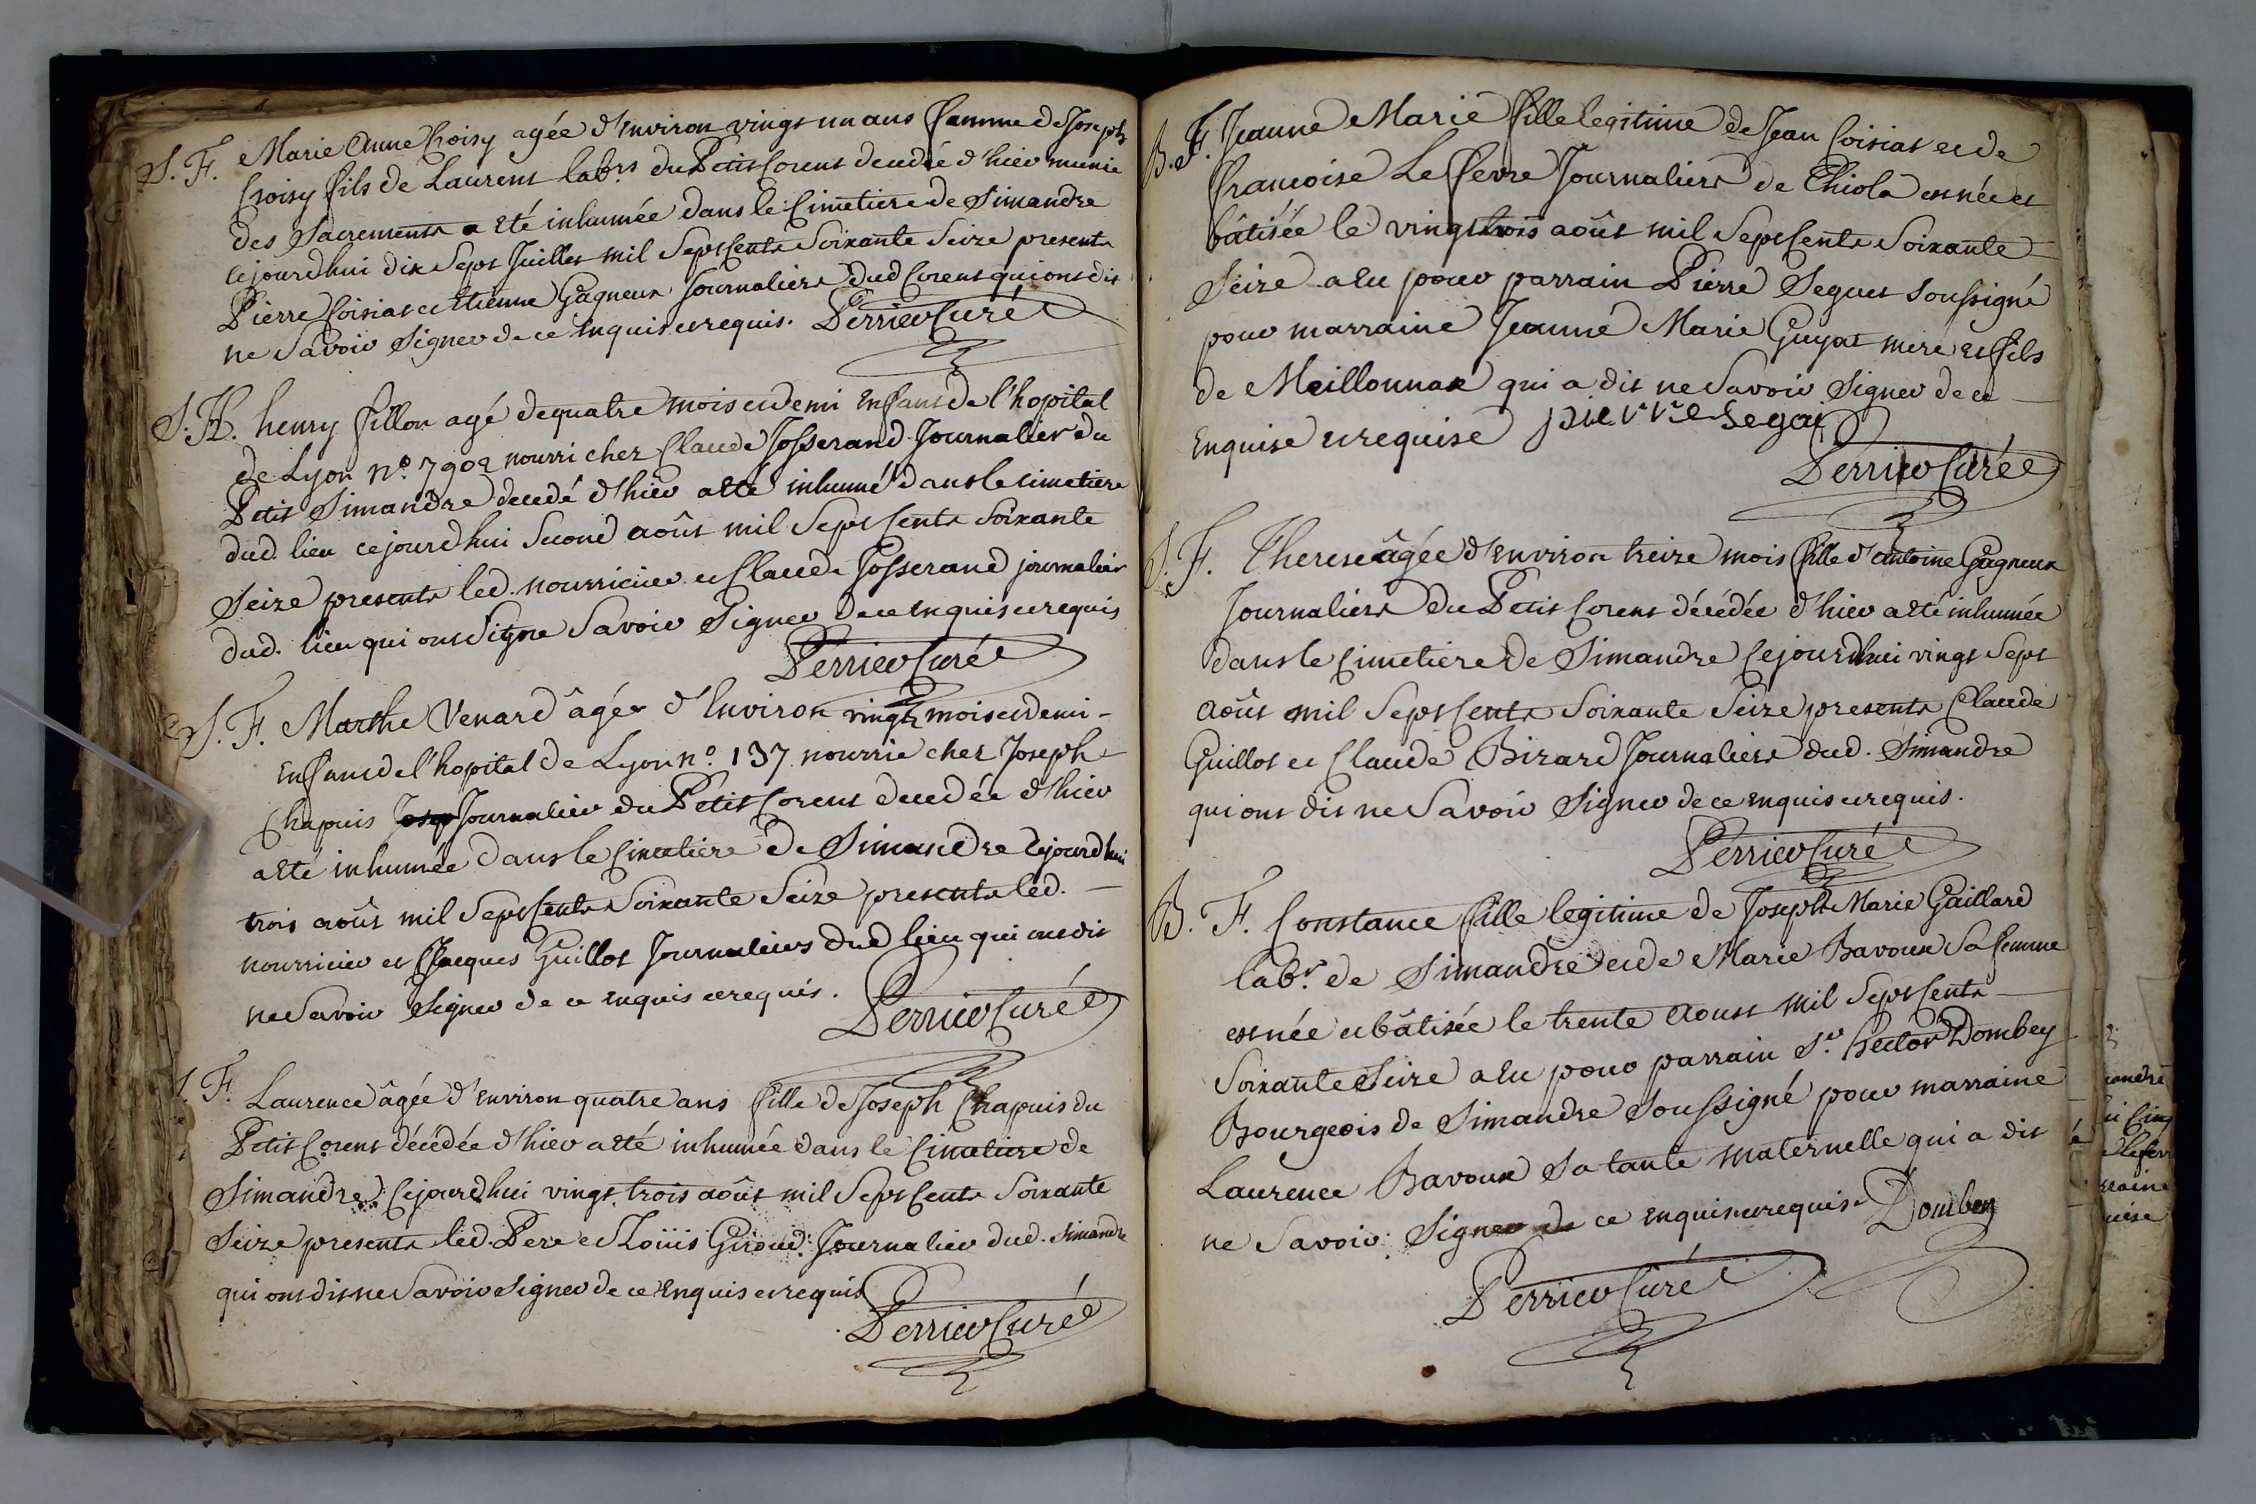 S. F. Marie Anne Croisy agée d'Environ vingt un ans femme de Joseph
Croisy fils de Laurent labrs du Petit Corent decedée d'hier munie
des Sacrements a Eté inhumée dans le Cimetiere de Simandre
cejourdhui dix Sept Juillet mil Sept Cents Soixante Seize presents
Pierre Coisiat et Etienne Gagneux Journaliers dud Corent qui ont dit
ne Savoir Signer de ce Enquis et requis. Perrier Curé
S. H. henry fillon agé de quatre mois et demi Enfant de l'hopital
de Lyon n.o 7902 nourri chez Claude Josserand Journalier du
Petit Simandre decedé d'hier a Eté inhumé dans le cimetiere
dud. lieu cejourdhui Second août mil Sept Cents Soixante
Seize presents led. nourricier et Claude Josserand journalier
dud. lieu qui ont Signe Savoir Signer de ce enquis et requis
Perrier Curé
S. F. Marthe Venard âgée d'Environ vingt mois et demi -
Enfant de l'hopital de Lyon n.o 137 nourrie chez Joseph
Chapuis Josep Journalier du Petit Corent decedée d'hier
a Eté inhumée dans le Cimetiere de Simandre Cejourdhui
trois août mil Sept Cents Soixante Seize presents led. -
nourricier et Jacques Guillot Journaliers dud lieu qui ont dit
ne Savoir Signer de ce Enquis et requis. Perrier Curé
S. F. Laurence âgée d'Environ quatre ans fille de Joseph Chapuis du
Petit Corent décédée d'hier a Eté inhumée dans le Cimetiere de
Simandre Cejourdhui vingt trois août mil Sept Cents Soixante
Seize presents led. Pere et Loüis Giroud Journalier dud. Simandre
qui ont dit ne Savoir Signer de ce Enquis et requis
Perrier Curé
B. F. Jeanne Marie fille legitime de Jean Coisiat et de
francoise Le fevre Journaliers de Thiola est née et
bâtisée le vingt trois août mil Sept Cents Soixante
Seize a Eu pour parrain Pierre Seguet Soussigné
pour marraine Jeanne Marie Guyat mere et fils
de Meillonnax qui a dit ne Savoir Signer de ce
Enquise et requise pierre Segar
Perrier Curé
S. F. Therese âgée d'Environ treize mois fille d'antoine Gagneux
Journaliers du Petit Corent décédée d'hier a Eté inhumée
dans le Cimetiere de Simandre Cejourdhui vingt Sept
Août mil Sept Cents Soixante Seize presents Claude
Guillot et Claude Birard Journaliers dud. Simandre
qui ont dit ne Savoir Signer de ce enquis et requis.
Perrier Curé
B. F. Constance fille legitime de Joseph Marie Gaillard
labr. de Simandre et de Marie Bavoux Sa femme
est née et bâtisée le trente Aoust mil Sept Cents
Soixante Seize a Eu pour parrain Sr. hector Dombey
Bourgeois de Simandre Soussigné pour marraine
Laurence Bavoux Sa tante maternelle qui a dit
ne Savoir Signer de ce Enquis et requis Dombey
Perrier Curé